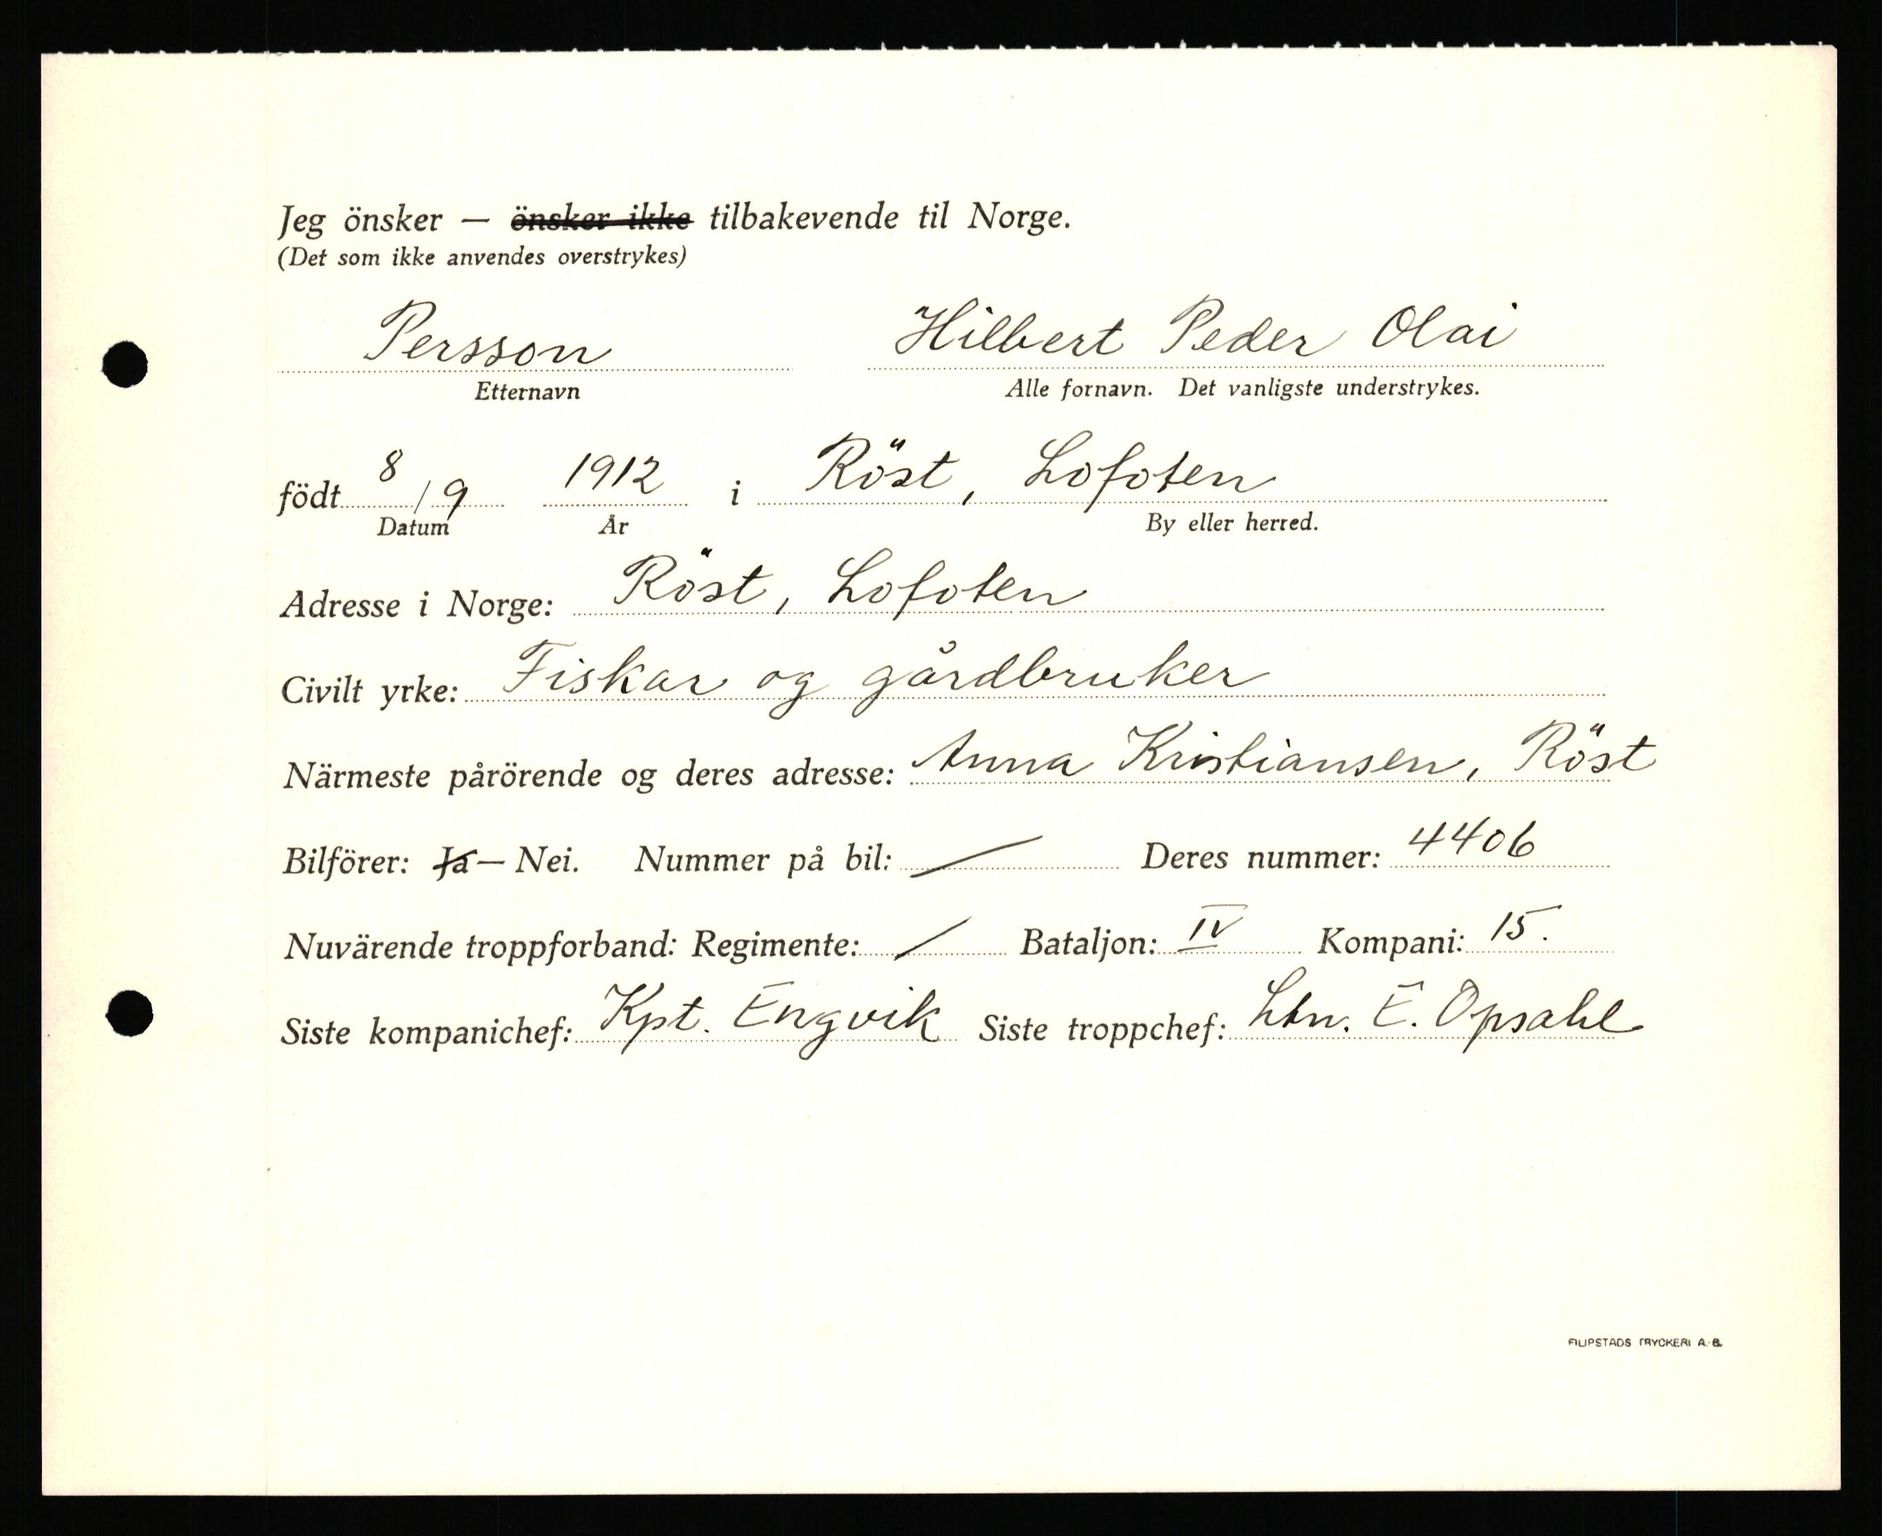 Jeg önsker — önsker ikke tilbakevende til Norge.
(Det som ikke anvendes overstrykes)
Persson Hilbert Peder Olai
Etternavn Alle fornavn. Det vanligste understrykes.
födt 8/9 1912 i Röst, Lofoten
Datum År By eller herred.
Adresse i Norge: Röst, Lofoten
Civilt yrke: Fiskar og gårdbruker
Närmeste pårörende og deres adresse: Anna Kristiansen, Röst
Bilförer: Ja — Nei. Nummer på bil: / Deres nummer: 4406
Nuvärende troppforband: Regimente: / Bataljon: IV Kompani: 15.
Siste kompanichef: Kpt. Engvik Siste troppchef: Ltn. E. Opsahl
FILIPSTADS TRYCKERI A.-B.